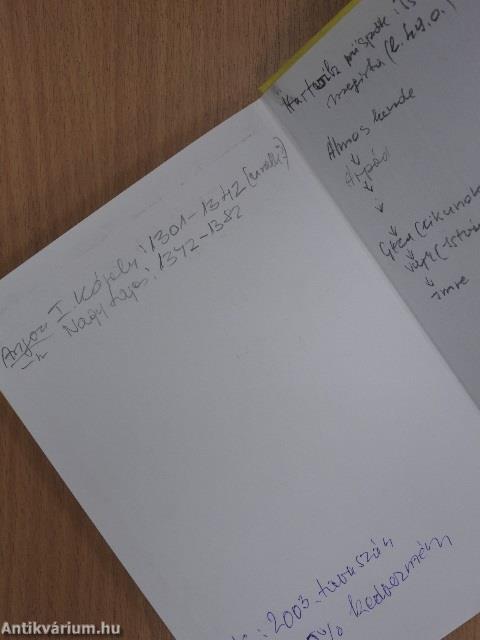 Anjou I. Károly: 1301-1342 (uralk.)
Nagy Lajos: 1342-1382
Hartvik püspök:
megírta (l. 49. o.)
Álmos
↓
Árpád
↓
↓
Géza
↓
Vajk (-István
↓
Imre
: 2003. tavaszán
% kedvezmény
Antikvárium.hu